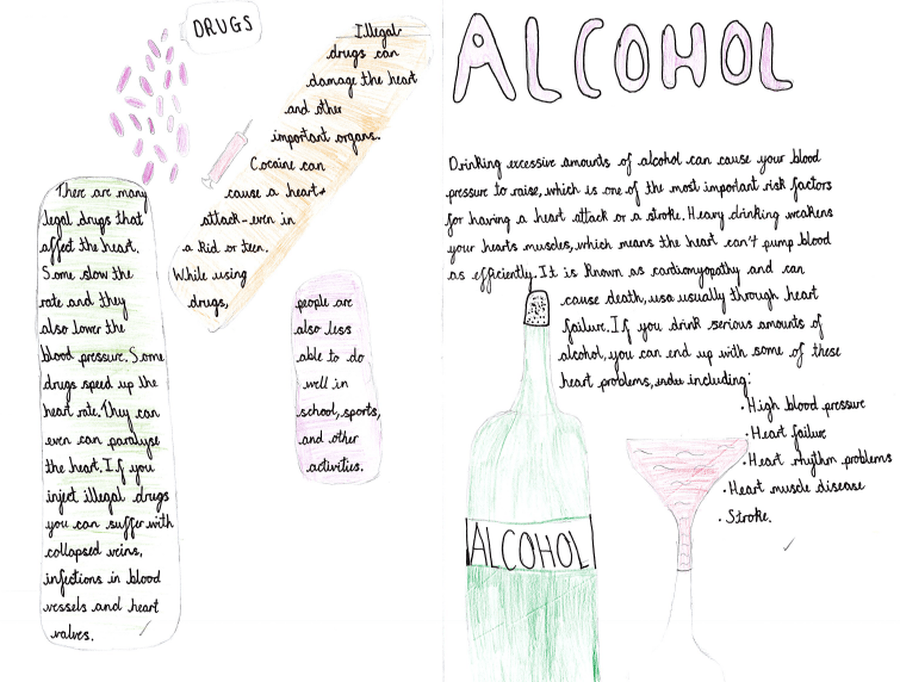 DRUGS
There are many
legal drugs that
affect the heart.
Some slow the
rate and they
also lower the
blood pressure. Some
drugs speed up the
heart rate. They can
even can paralyse
the heart. If you
inject illegal drugs
you can suffer with
collapsed veins,
infections in blood
vessels and heart
valves.
Illegal
drugs can
damage the heart
and other
important organs.
Cocaine can
cause a heart
attack-even in
a kid or teen.
While using
drugs,
people are
also less
able to do
well in
school, sports,
and other
activities.
ALCOHOL
Drinking excessive amounts of alcohol can cause your blood
pressure to raise, which is one of the most important risk factors
for having a heart attack or a stroke. Heavy drinking weakens
your hearts muscles, which means the heart can't pump blood
as efficiently. It is known as cardiomyopathy and can
cause death, usa usually through heart
failure. If you drink serious amounts of
alcohol, you can end up with some of these
heart problems, including:
• High blood pressure
• Heart failure
• Heart rhythm problems
• Heart muscle disease
• Stroke.
ALCOHOL